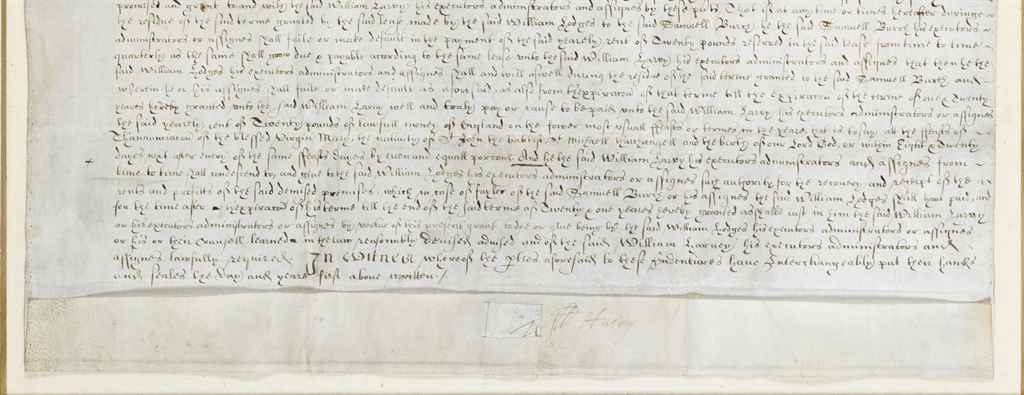 promised and graunt to and with the said William Larvy his executors administrators and assignes by these that if at any time or times hereafter during
the residue of the said terme granted by the said lease made by the said William Lodges to the said Samuell Burch he the said Samuell Burch his executors
administrators or assignes shall faile or make default in the payment of the said yearely rent of Twenty pounds reserved in the said lease from time to time
quarterly as the same shall grow due & payable according to the same lease unto the said William Larvy his executors administrators and assignes that then he the
said William Lodges his executors administrators and assignes shall and will aswell during the residue of the said terme granted to the said Samuell Burch and
wherein he or his assignes shall faile or make default as aforesaid, as also from of that terme till the expiracon of the terme of one & Twenty
yeares hereby granted unto the said William Larvy well and truly pay or cause to be paid unto the said William Larvy his executors administrators or assignes
the said yearely rent of Twenty pounds of lawfull money of England on the fower most usuall ffeasts or termes in the yeare, that is to say at the ffeasts of
Thannunciacon of the blessed Virgin Mary, the nativity of St John the babtist, St Michaell Tharchangell and the birth of our Lord God, or within Eight & Twenty
dayes next after every of the same ffeasts dayes by even and equall porcons And he the said William Larvy his executors administrators and assignes from
time to time shall and give to the said William Lodges his executors administrators or assignes such authority for the recovery and receipt of the
rents and proffits of the said demised premisses which in case of failer of the said Samuell Burch or his assignes the said William Lodges shall have paid, and
for the time after of his terme till the end of the said terme of Twenty & one yeares hereby granted as shalbe just in him the said William Larvy
or his executors administrators or assignes by vertue of this present grant made or give being by the said William Lodges his executors administrators or assignes
or his or their Counsell learned in the law reasonably devised advised and of the said William Larvey his executors administrators and
assignes lawfully required In Witnes whereof the parties aforesaid to these Indentures have Interchangeably put their hands
and seales the day and yeare first above written
Harvy